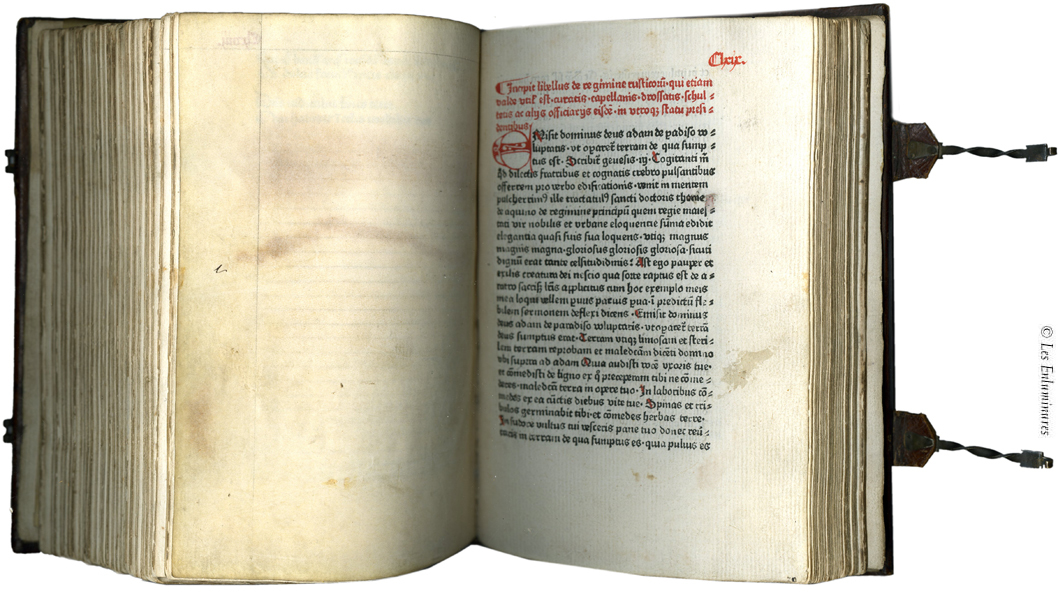 Clxix.
Incipit libellus de regimine rusticorū· qui etiam
valde vtił est· curatis· capellanis· drossatis· schul⸗
tetis ac alijs officiarijs eisdē· in vtroq̨ statu presi⸗
dentibus
EMisit dominus deus adam de padiso vo⸗
luptatis· vt operaret̄ terram de qua sump⸗
tus est· Scribit̄ genesis· iij· Cogitanti m̄
qd dilectis fratribus et cognatis crebro pulsantibus
offerrem pro verbo edificationis· venit in mentem
pulcherrim9 ille tractatul9 sancti doctoris thome
de aquino de regimine principū quem regie maies⸗
tati vir nobilis et vrbane eloquentie sūma edidit
elegantia quasi suis sua loquens· vtiq̨ magnus
magnis magna· gloriosus gloriosis gloriosa· sicuti
dignū erat tante celsitudinis: Ast ego pauper et
exilis creatura dei nescio qua sorte raptus est de a⸗
cum hoc exemplo meis
mea loqui vellem puis paruis pua· ī predictū fle⸗
bilem sermonem deflexi dicens· Emisit dominus
deus adam de paradiso voluptatis· vt oparet̄ terrā
sumptus erat· Terram vtiq̨ limosam et steri⸗
lem terram reprobam et maledictam dicēti domino
vbi supra ad adam Quia audisti vocē vxoris tue·
et comedisti de ligno ex q̊ preceperam tibi ne cōme⸗
deres· maledicta terra in opere tuo· In laboribus cō⸗
medes ex ea cūctis diebus vite tue· Spinas et tri⸗
bulos germinabit tibi· et cōmedes herbas terre·
In sudore vultus tui vesceris pane tuo donec reu̅⸗
taris in terram de qua sumptus es· quia puluis es
© Les Enluminures